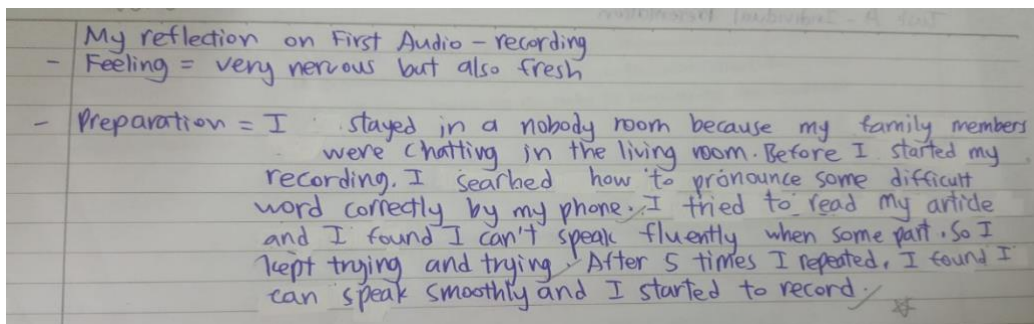 My reflection on First Audio - recording
- Feeling = very nervous but also fresh
- Preparation = I stayed in a nobody room because my family members
were chatting in the living room. Before I started my
recording, I searhed how to pronounce some difficult
word correctly by my phone. I tried to read my article
and I found I can't speak fluently when some part. So I
kept trying and trying. After 5 times I repeated, I found I
can speak smoothly and I started to record.